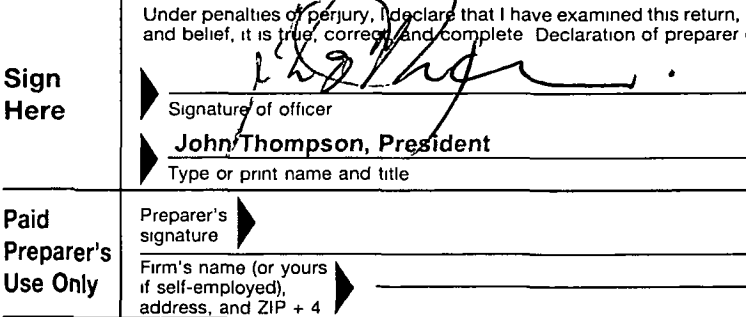 Under penalties of perjury, I declare that I have examined this return,
and belief, it is true, correct, and complete Declaration of preparer
Sign
Here
Signature of officer
John Thompson, President
Type or print name and title
Paid
Preparer's
Use Only
Preparer's
signature
Firm's name (or yours
if self-employed),
address, and ZIP + 4